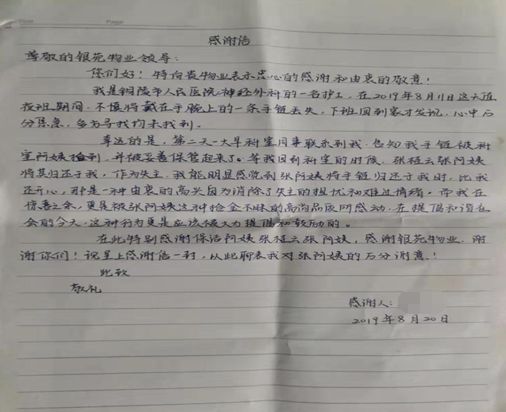 感谢信
尊敬的银苑物业领导：
你们好！特向贵物业表示衷心的感谢和由衷的敬意！
我是铜陵市人民医院神经外科的一名护工，在2019年8月11日这天值
夜班期间，不慎将戴在手腕上的一条手链丢失，下班回到家才发现，心中万
分焦急，多方寻找均未找到。
幸运的是，第二天一大早科室同事联系到我，告知我手链被科
室阿姨捡到，并被妥善保管起来了。等我回到科室的时候，张桂云张阿姨
将其归还于我，作为失主，我能明显感觉到张阿姨将手链归还于我时，比我
还开心，那是一种由衷的高兴因为消除了失主的担忧和难过情绪。而我在
惊喜之余，更是被张阿姨这种拾金不昧的高尚品质所感动，在提倡和谐社
会的今天，这种行为更是应该被大力提倡和鼓励的。
在此特别感谢保洁阿姨张桂云张阿姨，感谢银苑物业，谢
谢你们！现呈上感谢信一封，以此聊表我对张阿姨的万分谢意！
此致
敬礼
感谢人：
2019年8月20日